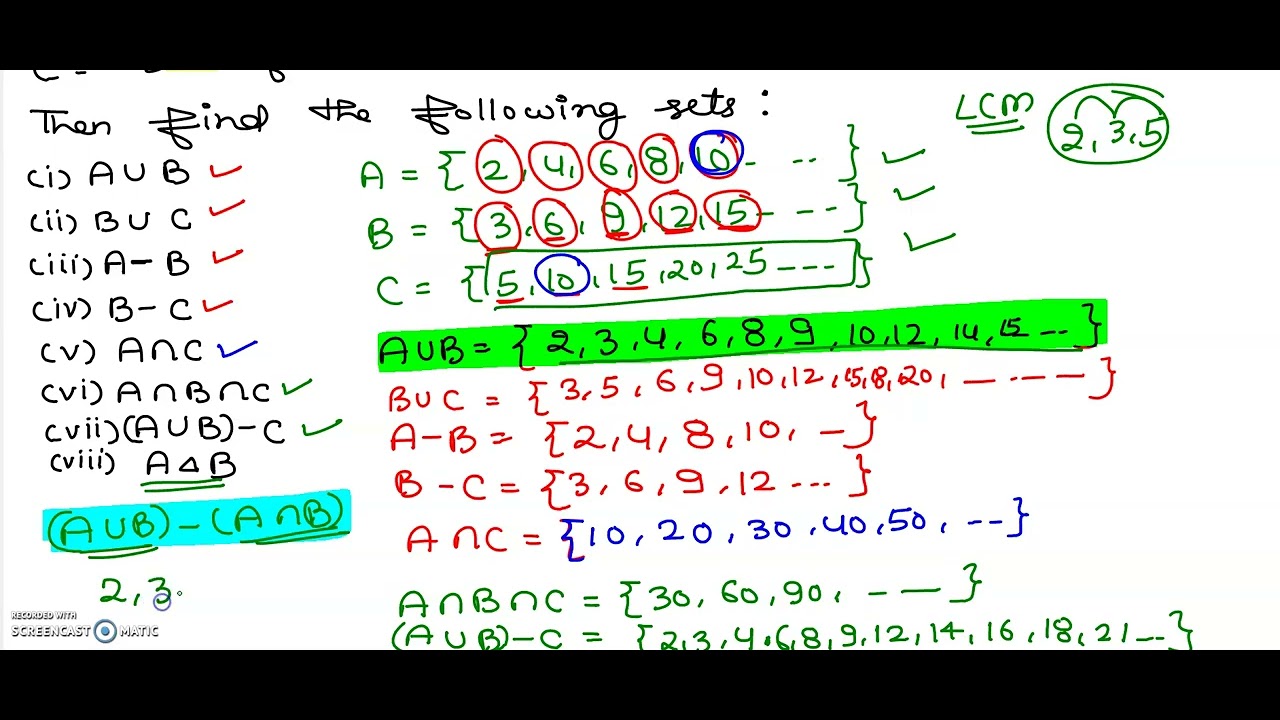 Then find the following sets :
LCM 2, 3, 5
(i) A ∪ B
(ii) B ∪ C
(iii) A - B
(iv) B - C
(v) A ∩ C
(vi) A ∩ B ∩ C
(vii) (A ∪ B) - C
(viii) A △ B
(A ∪ B) - (A ∩ B)
2, 3
A = { 2, 4, 6, 8, 10 - - - }
B = { 3, 6, 9, 12, 15 - - - - }
C = { 5, 10, 15, 20, 25 - - - - }
A ∪ B = { 2, 3, 4, 6, 8, 9, 10, 12, 14, 15 -- }
B ∪ C = { 3, 5, 6, 9, 10, 12, 15, 18, 20, — - — — }
A - B = { 2, 4, 8, 10, — }
B - C = { 3, 6, 9, 12 ... }
A ∩ C = { 10, 20, 30, 40, 50, -- }
A ∩ B ∩ C = { 30, 60, 90, - — }
(A ∪ B) - C = { 2, 3, 4, 6, 8, 9, 12, 14, 16, 18, 21 -- }
RECORDED WITH
SCREENCAST MATIC